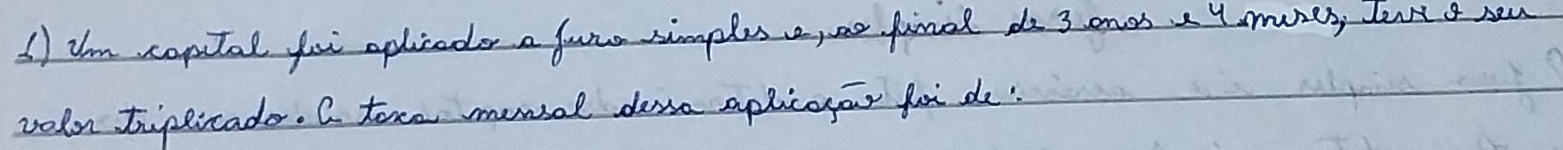 1) Um capital foi aplicado a juro simples e, ao final de 3 anos e 4 meses, teve o seu
valor triplicado. A taxa mensal dessa aplicação foi de: